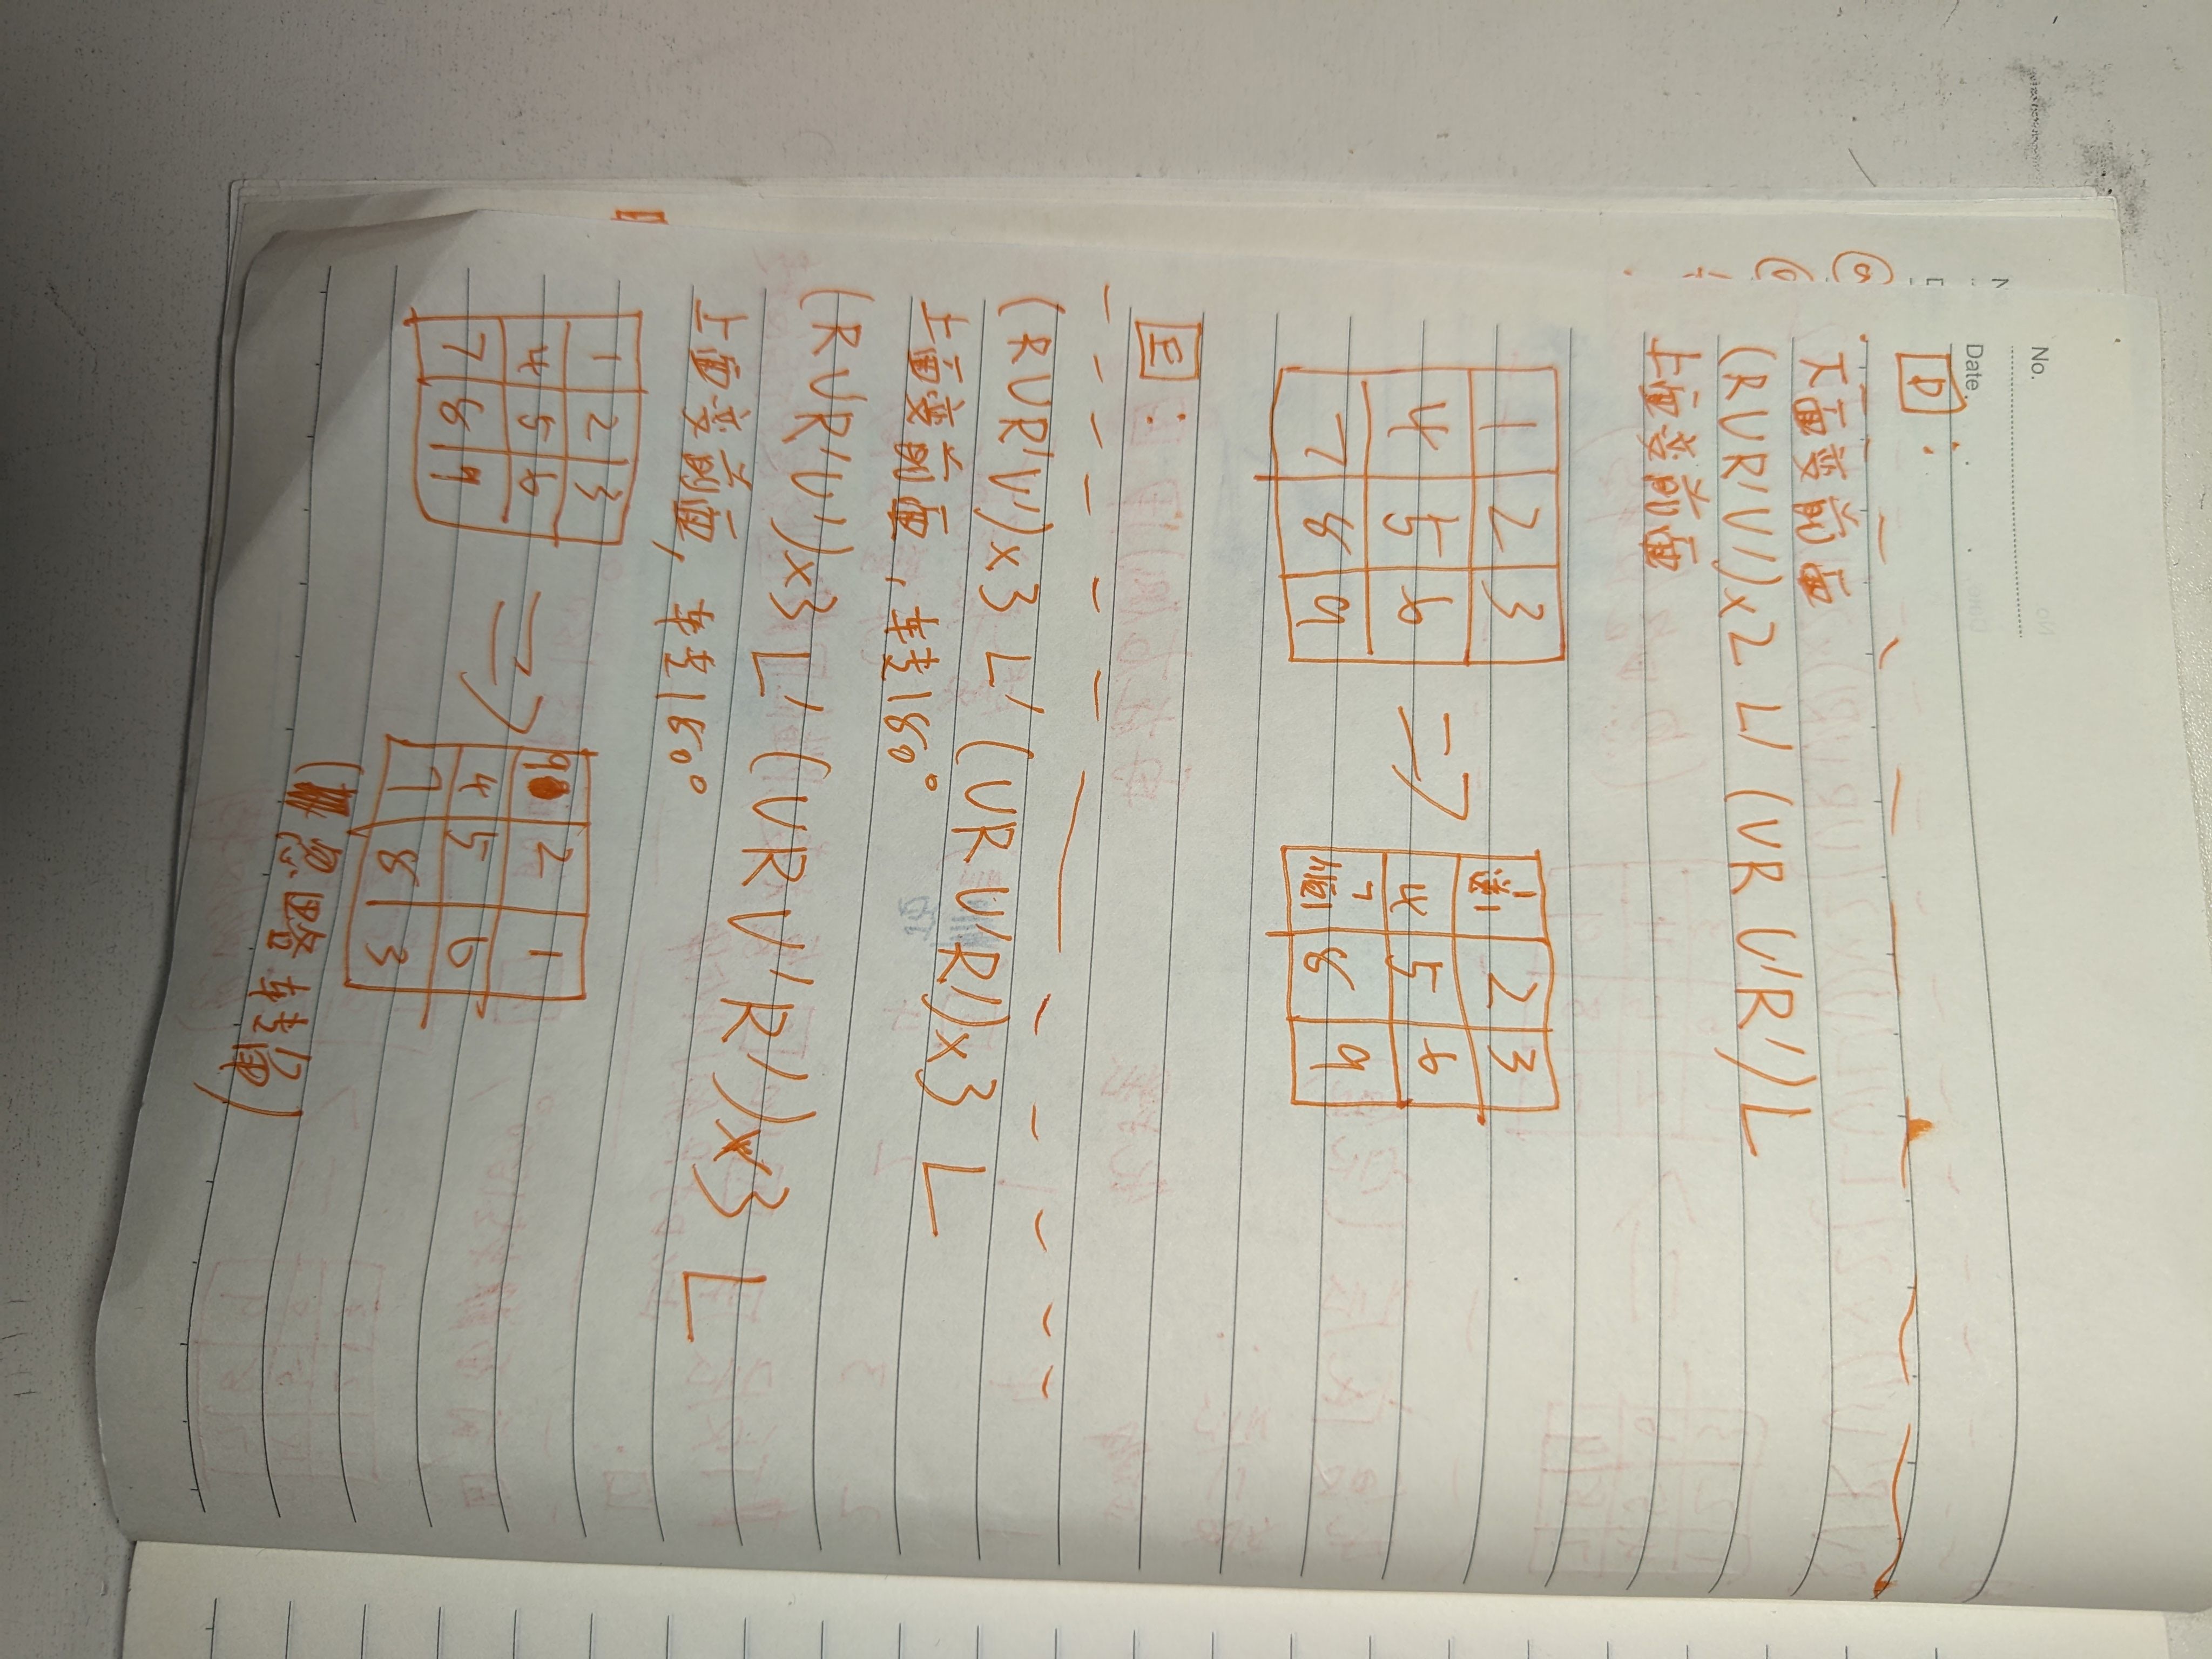 No.
Date.
D:
下面变前面
(RUR'U')x2 L' (UR U'R')L
上面变前面
1 2 3
4 5 6
7 8 9
=>
1 2 3
4 5 6
7 8 9
E:
(RUR'U')x3 L' (UR U'R')x3 L
上面变前面,转180°
(RUR'U')x3 L' (URU'R')x3 L
上面变前面,转180°
1 2 3
4 5 6
7 8 9
=>
9 2 1
4 5 6
7 8 3